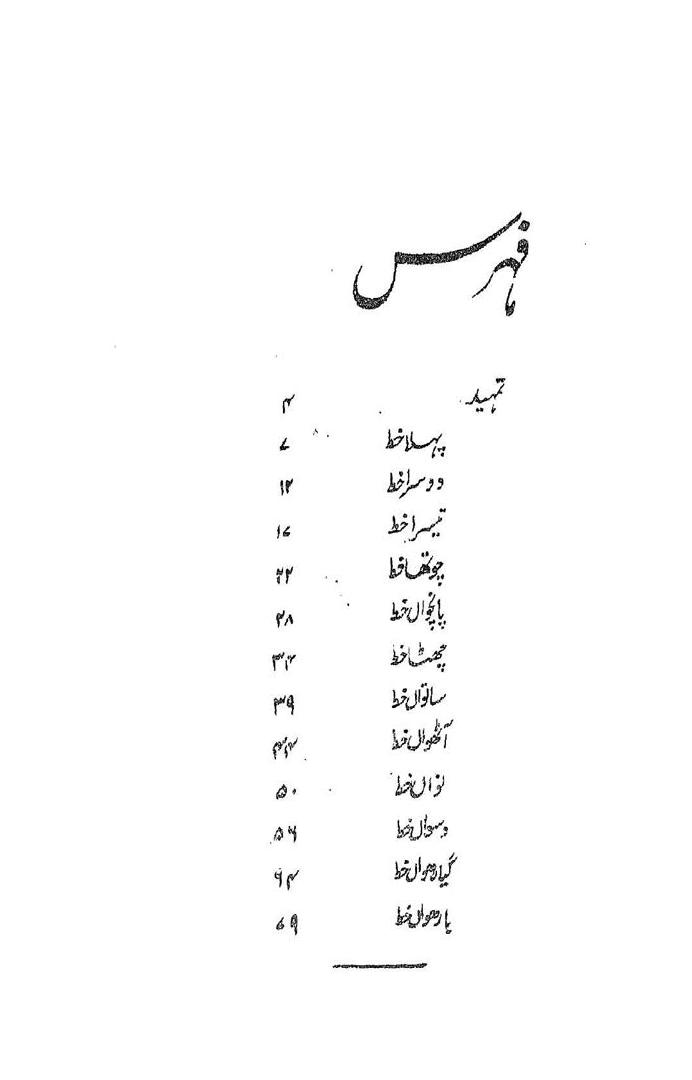 فہرس
تمہید ۴
پہلا خط ۷
دوسرا خط ۱۲
تیسرا خط ۱۷
چوتھا خط ۲۲
پانچواں خط ۲۸
چھٹا خط ۳۴
ساتواں خط ۳۹
آٹھواں خط ۴۴
نواں خط ۵۰
دسواں خط ۵۶
گیارھواں خط ۶۴
بارھواں خط ۷۹